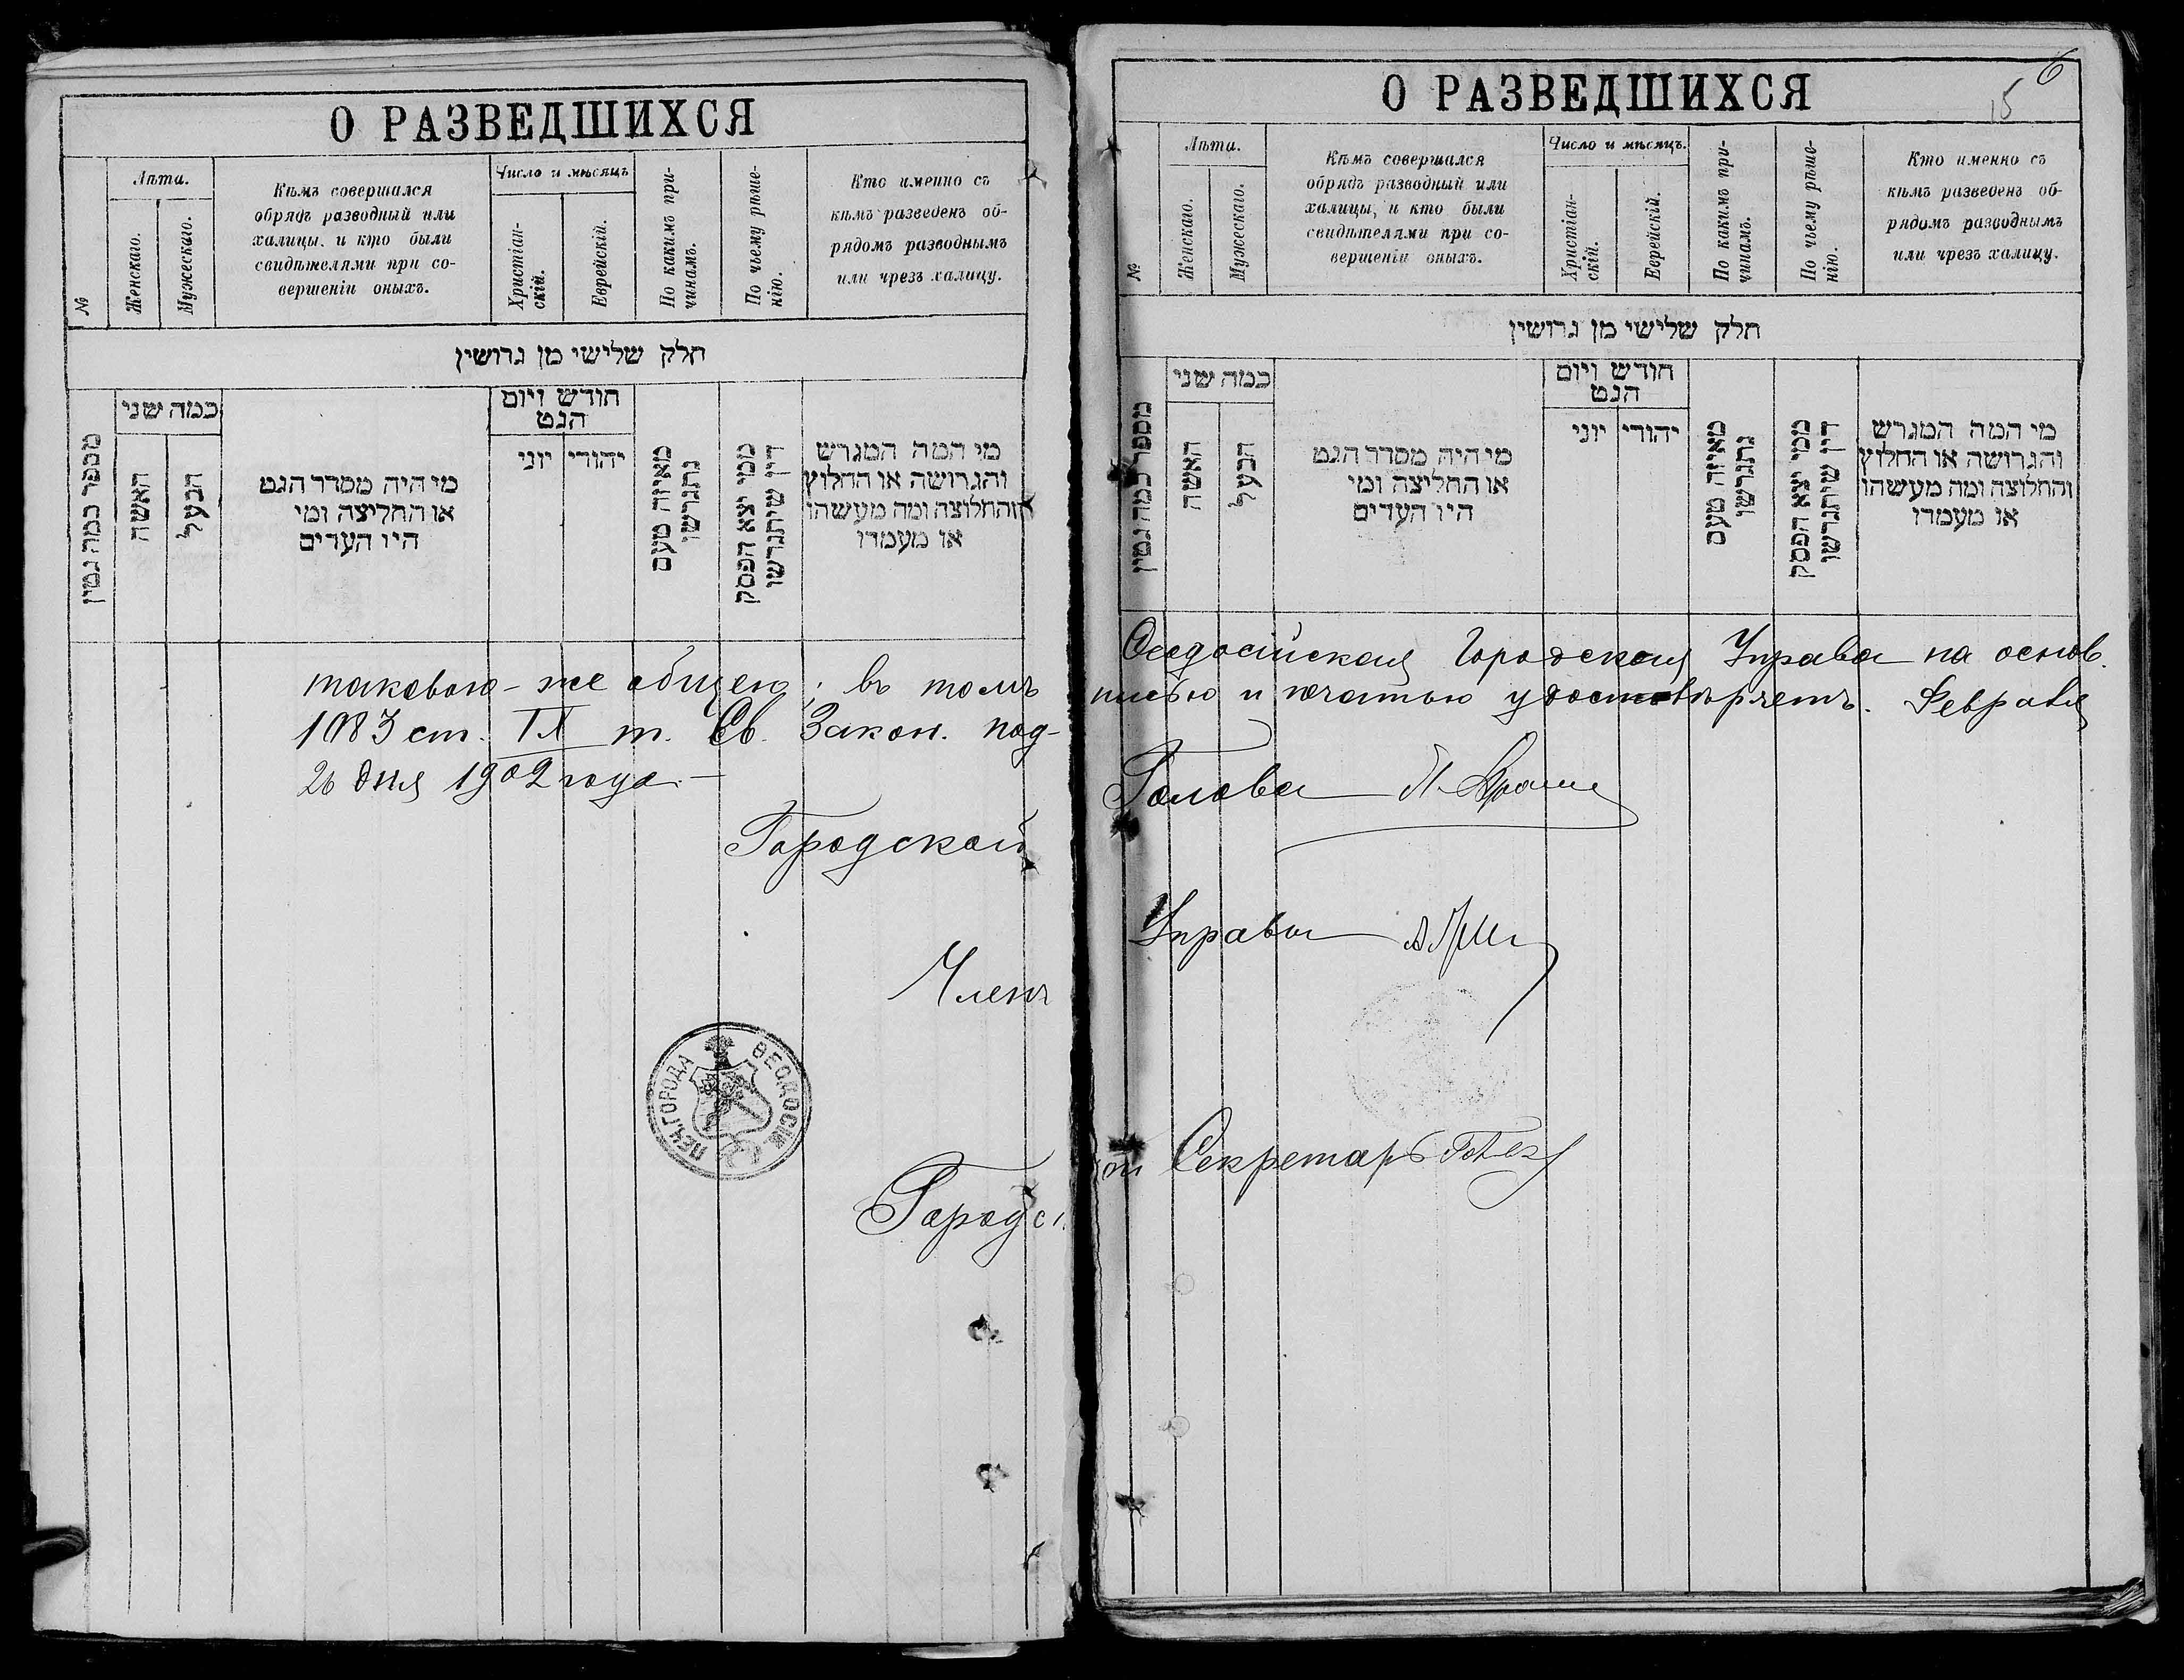 О РАЗВЕДШИХСЯ
№
Лѣта.
Женскаго.
Мужескаго.
Кѣмъ совершался
обрядъ разводный или
халицы, и кто были
свидѣтелями при со-
вершеніи оныхъ.
Число и мѣсяцъ
Христіан-
скій.
Еврейскій.
По какимъ при-
чинамъ.
По чьему рѣше-
нію.
Кто именно съ
кѣмъ разведенъ об-
рядомъ разводнымъ
или чрезъ халицу.
חלק שלישי מן גרושין
מספר כמה גטין
כמה שני
האשה
הבעל
מי היה מסדר הגט
או החליצה ומי
היו העדים
חודש ויום
הגט
יהודי
יוני
מאיזה טעם
נתגרשו
ממי יצא הפסק
דין שיתגרשו
מי המה המגרש
והגרושה או החלוץ
והחלוצה ומה מעשהו
או מעמדו
таковою-же общею; въ томъ
1083 ст. IX т. Св. Закон. под-
26 дня 1902 года.—
Городской
Членъ
ПЕЧ. ГОРОДА ѲЕОДОСІИ
Городс
О РАЗВЕДШИХСЯ
6
15
№
Лѣта.
Женскаго.
Мужескаго.
Кѣмъ совершался
обрядъ разводный или
халицы, и кто были
свидѣтелями при со-
вершеніи оныхъ.
Число и мѣсяцъ.
Христіан-
скій.
Еврейскій.
По какимъ при-
чинамъ.
По чьему рѣше-
нію.
Кто именно съ
кѣмъ разведенъ об-
рядомъ разводнымъ
или чрезъ халицу.
חלק שלישי מן גרושין
מספר כמה גטין
כמה שני
האשה
הבעל
מי היה מסדר הגט
או החליצה ומי
היו העדים
חודש ויום
הגט
יהודי
יוני
מאיזה טעם
נתגרשו
ממי יצא הפסק
דין שיתגרשו
מי המה המגרש
והגרושה או החלוץ
והחלוצה ומה מעשהו
או מעמדו
Ѳеодосійская Городская Управа на основ.
писью и печатью удостовѣряетъ. Февраля
Голова
Управы
ой Секретарь